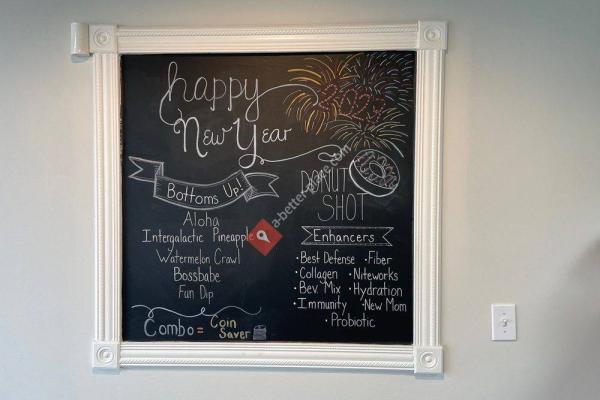 happy
New Year
2021
Bottoms Up!
Aloha
Intergalactic Pineapple
Watermelon Crawl
Bossbabe
Fun Dip
Combo = Coin
Saver
DONUT
SHOT
Enhancers
• Best Defense • Fiber
• Collagen • Niteworks
• Bev. Mix • Hydration
• Immunity • New Mom
• Probiotic
a-better-place.com